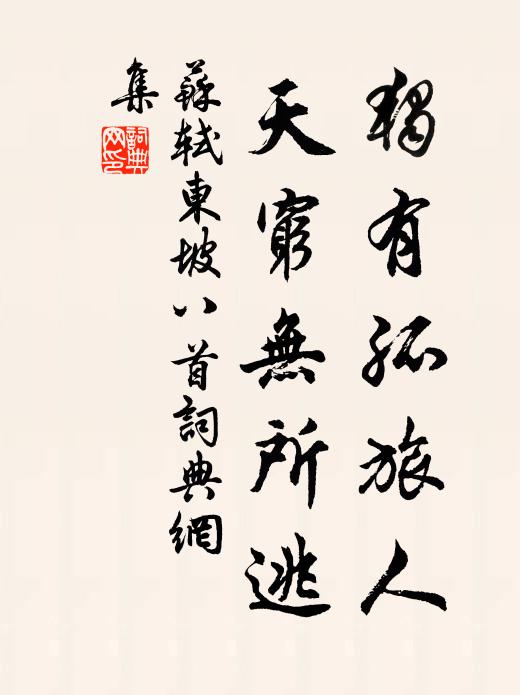 獨有孤旅人
天窮無所逃
蘇軾東坡八首詞典網
集
詞典
網印